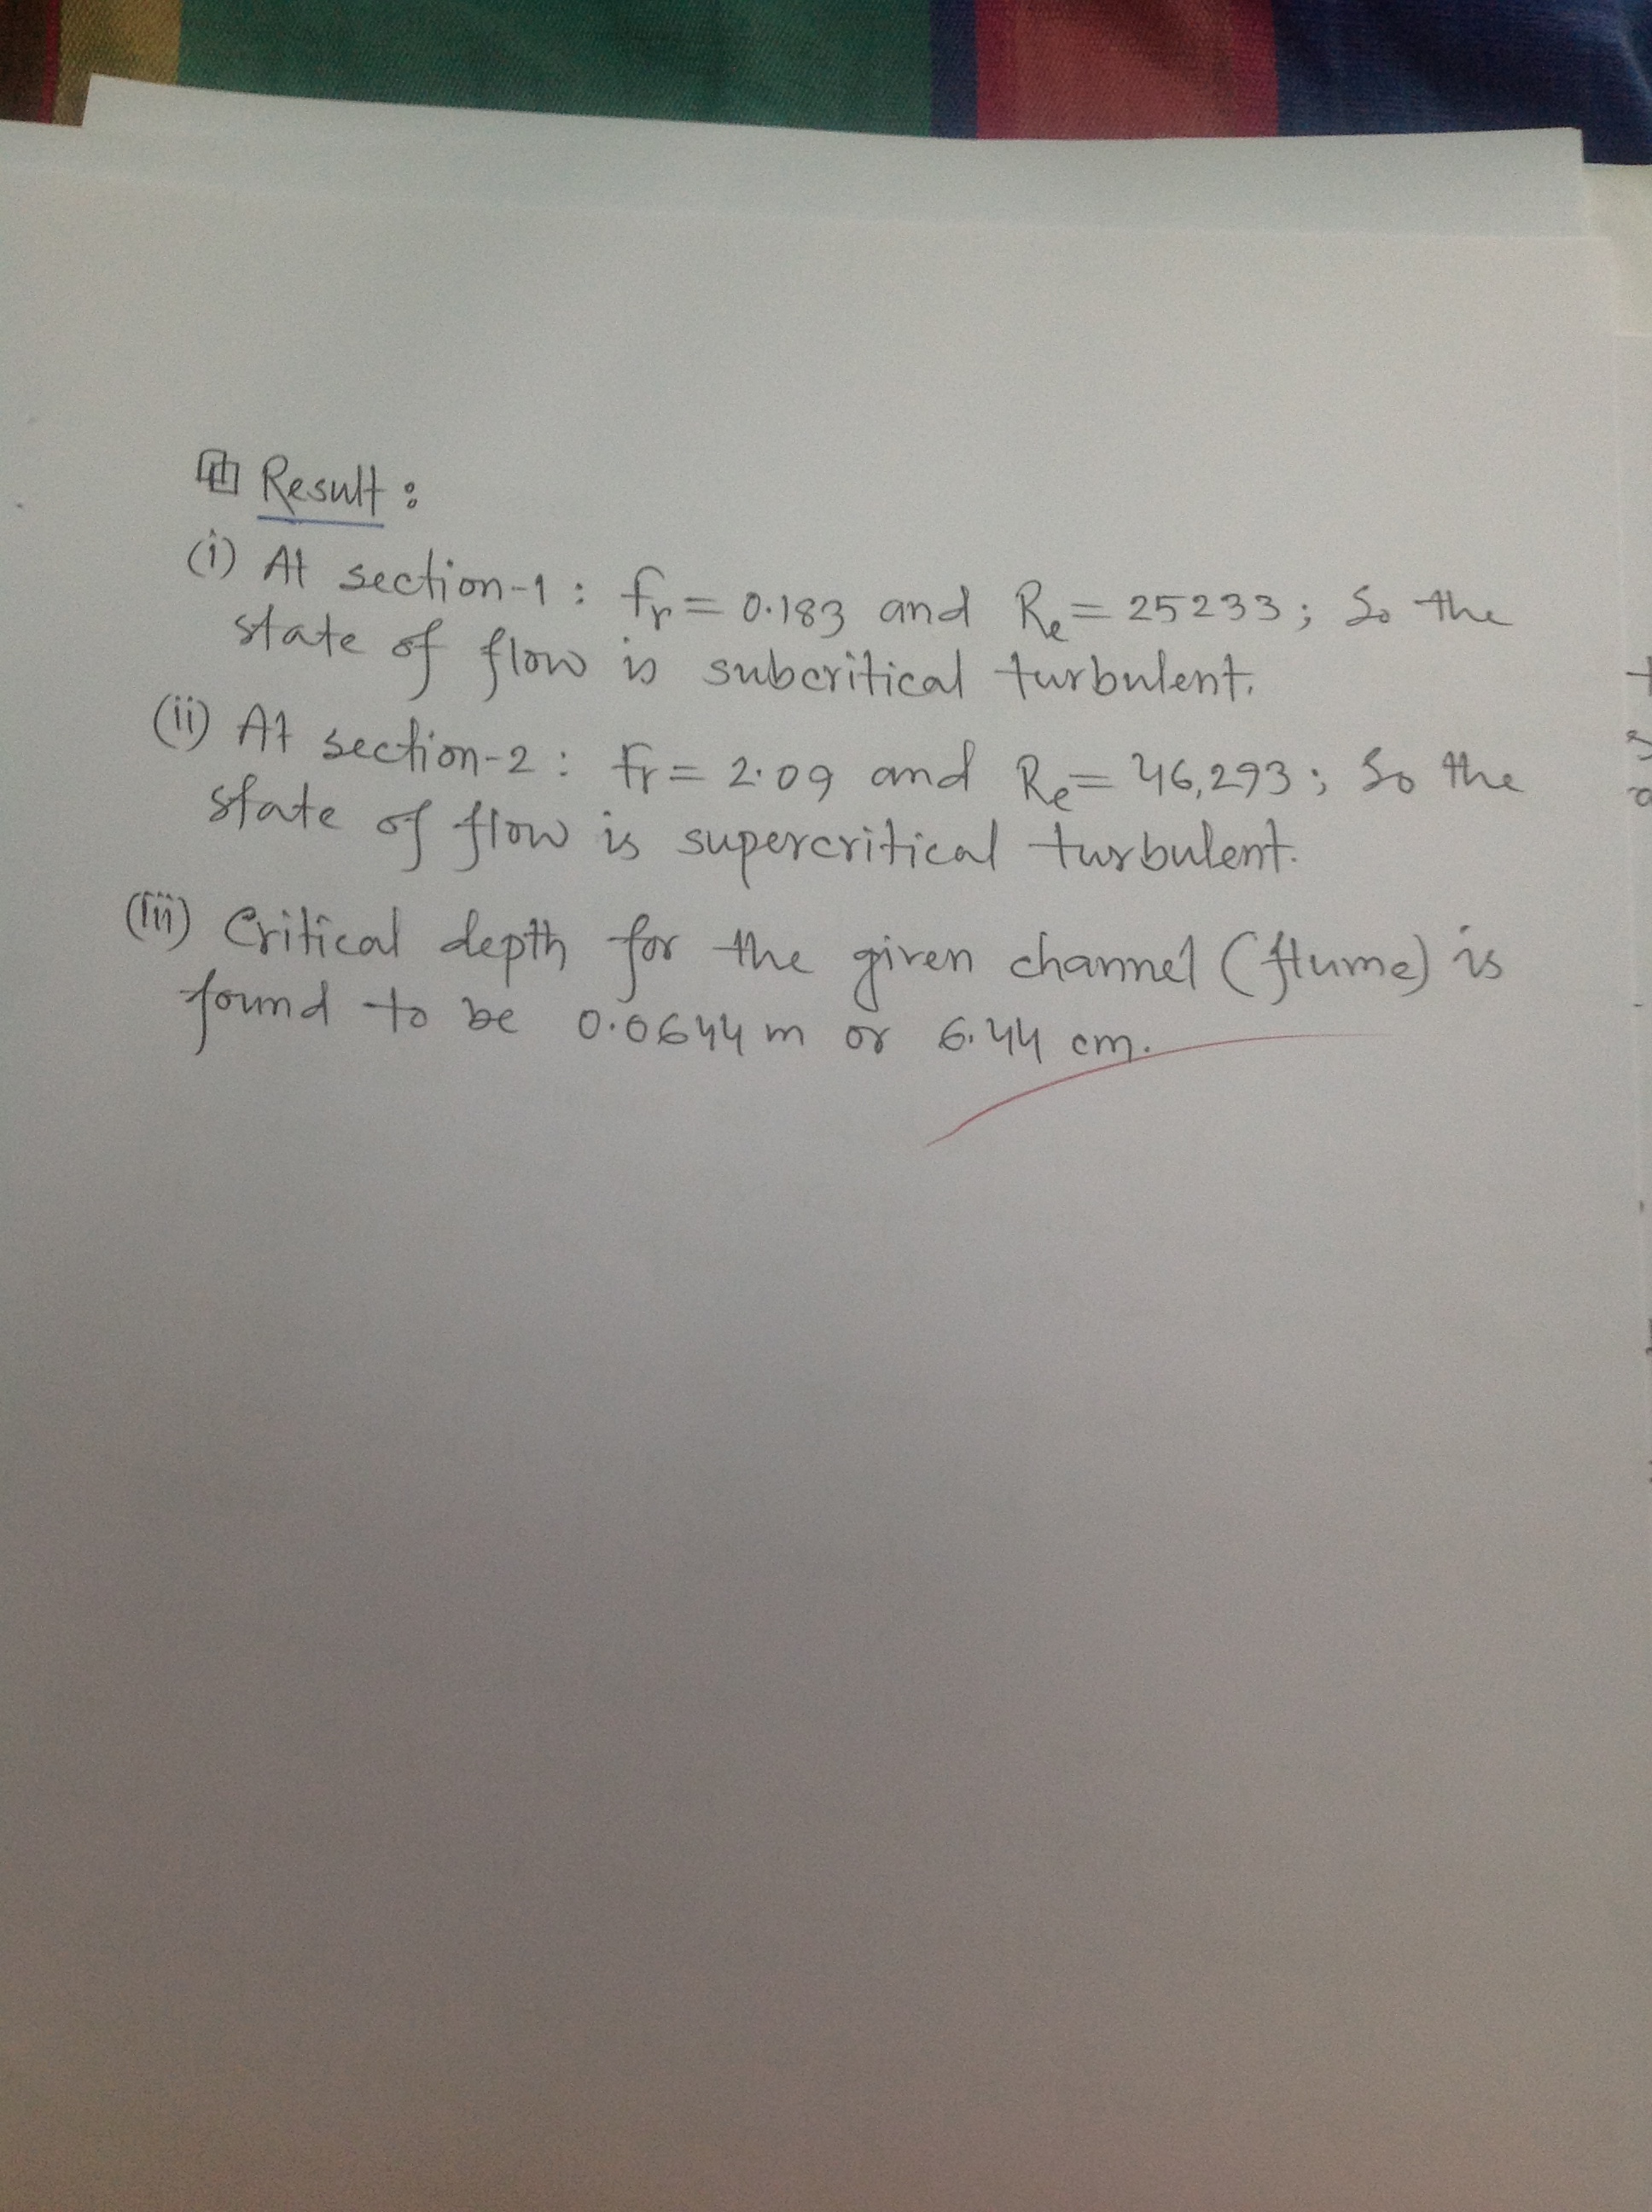 Result:
(i) At section-1: Fr = 0.183 and Re = 25233; So the
state of flow is subcritical turbulent.
(ii) At section-2: Fr = 2.09 and Re = 46,293; So the
state of flow is supercritical turbulent.
(iii) Critical depth for the given channel (flume) is
found to be 0.0644 m or 6.44 cm.